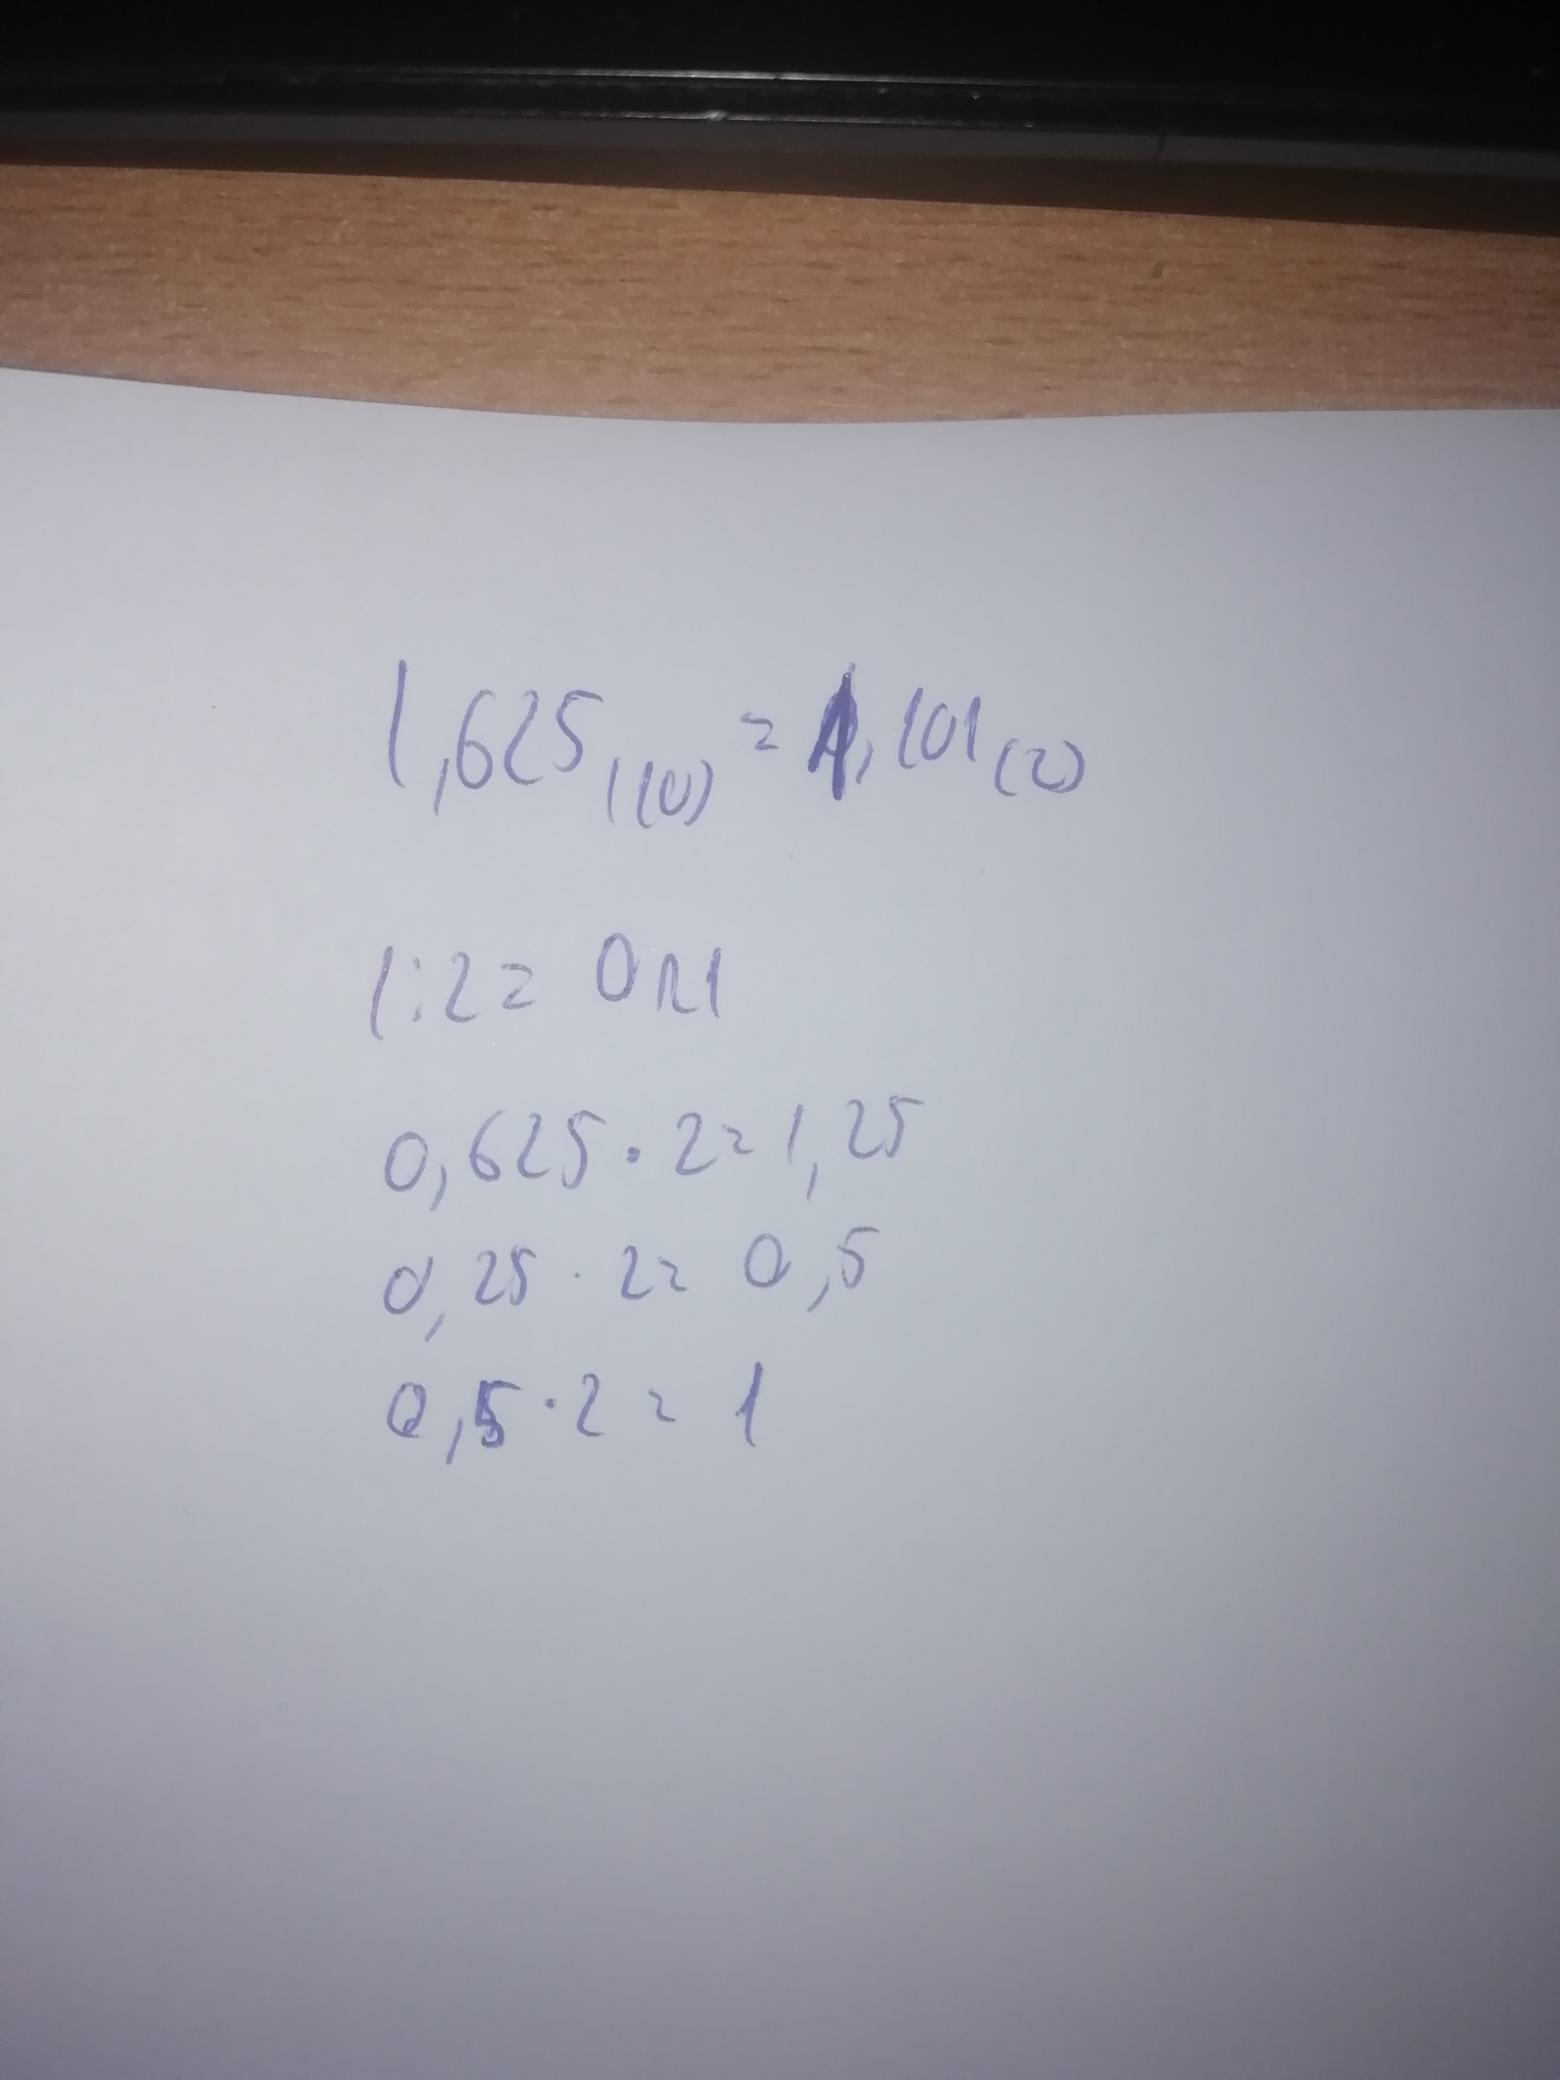 1,625((10) = 1,101(2)
1:2= 0 r 1
0,625 · 2 = 1,25
0,25 · 2 = 0,5
0,5 · 2 = 1